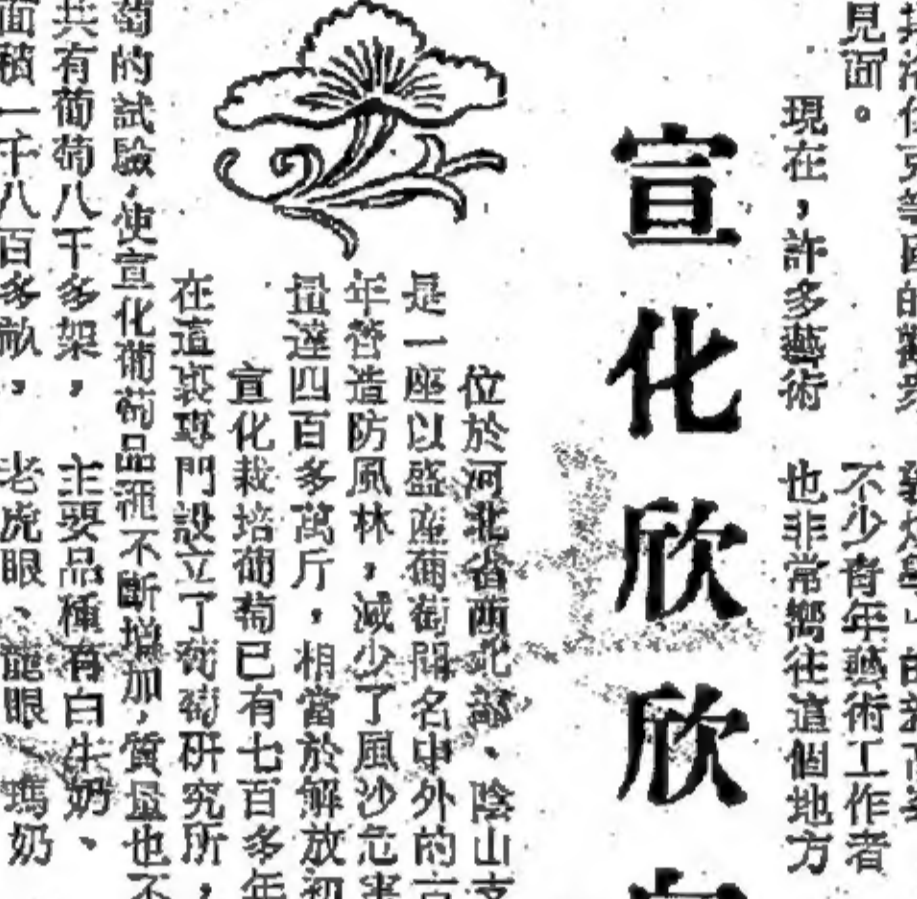 見面。
現在，許多藝術
不少青年藝術工作者
也非常嚮往這個地方
宣化欣欣
位於河北省西北部、陰山支
是一座以盛產葡萄聞名中外的古
年營造防風林，減少了風沙危害
量達四百多萬斤，相當於解放初
宣化栽培葡萄已有七百多年
在這裏專門設立了葡萄研究所，
萄的試驗，使宣化葡萄品種不斷增加，質量也不
共有葡萄八千多架，主要品種有白牛奶、
面積一千八百多畝，老虎眼、龍眼、瑪奶